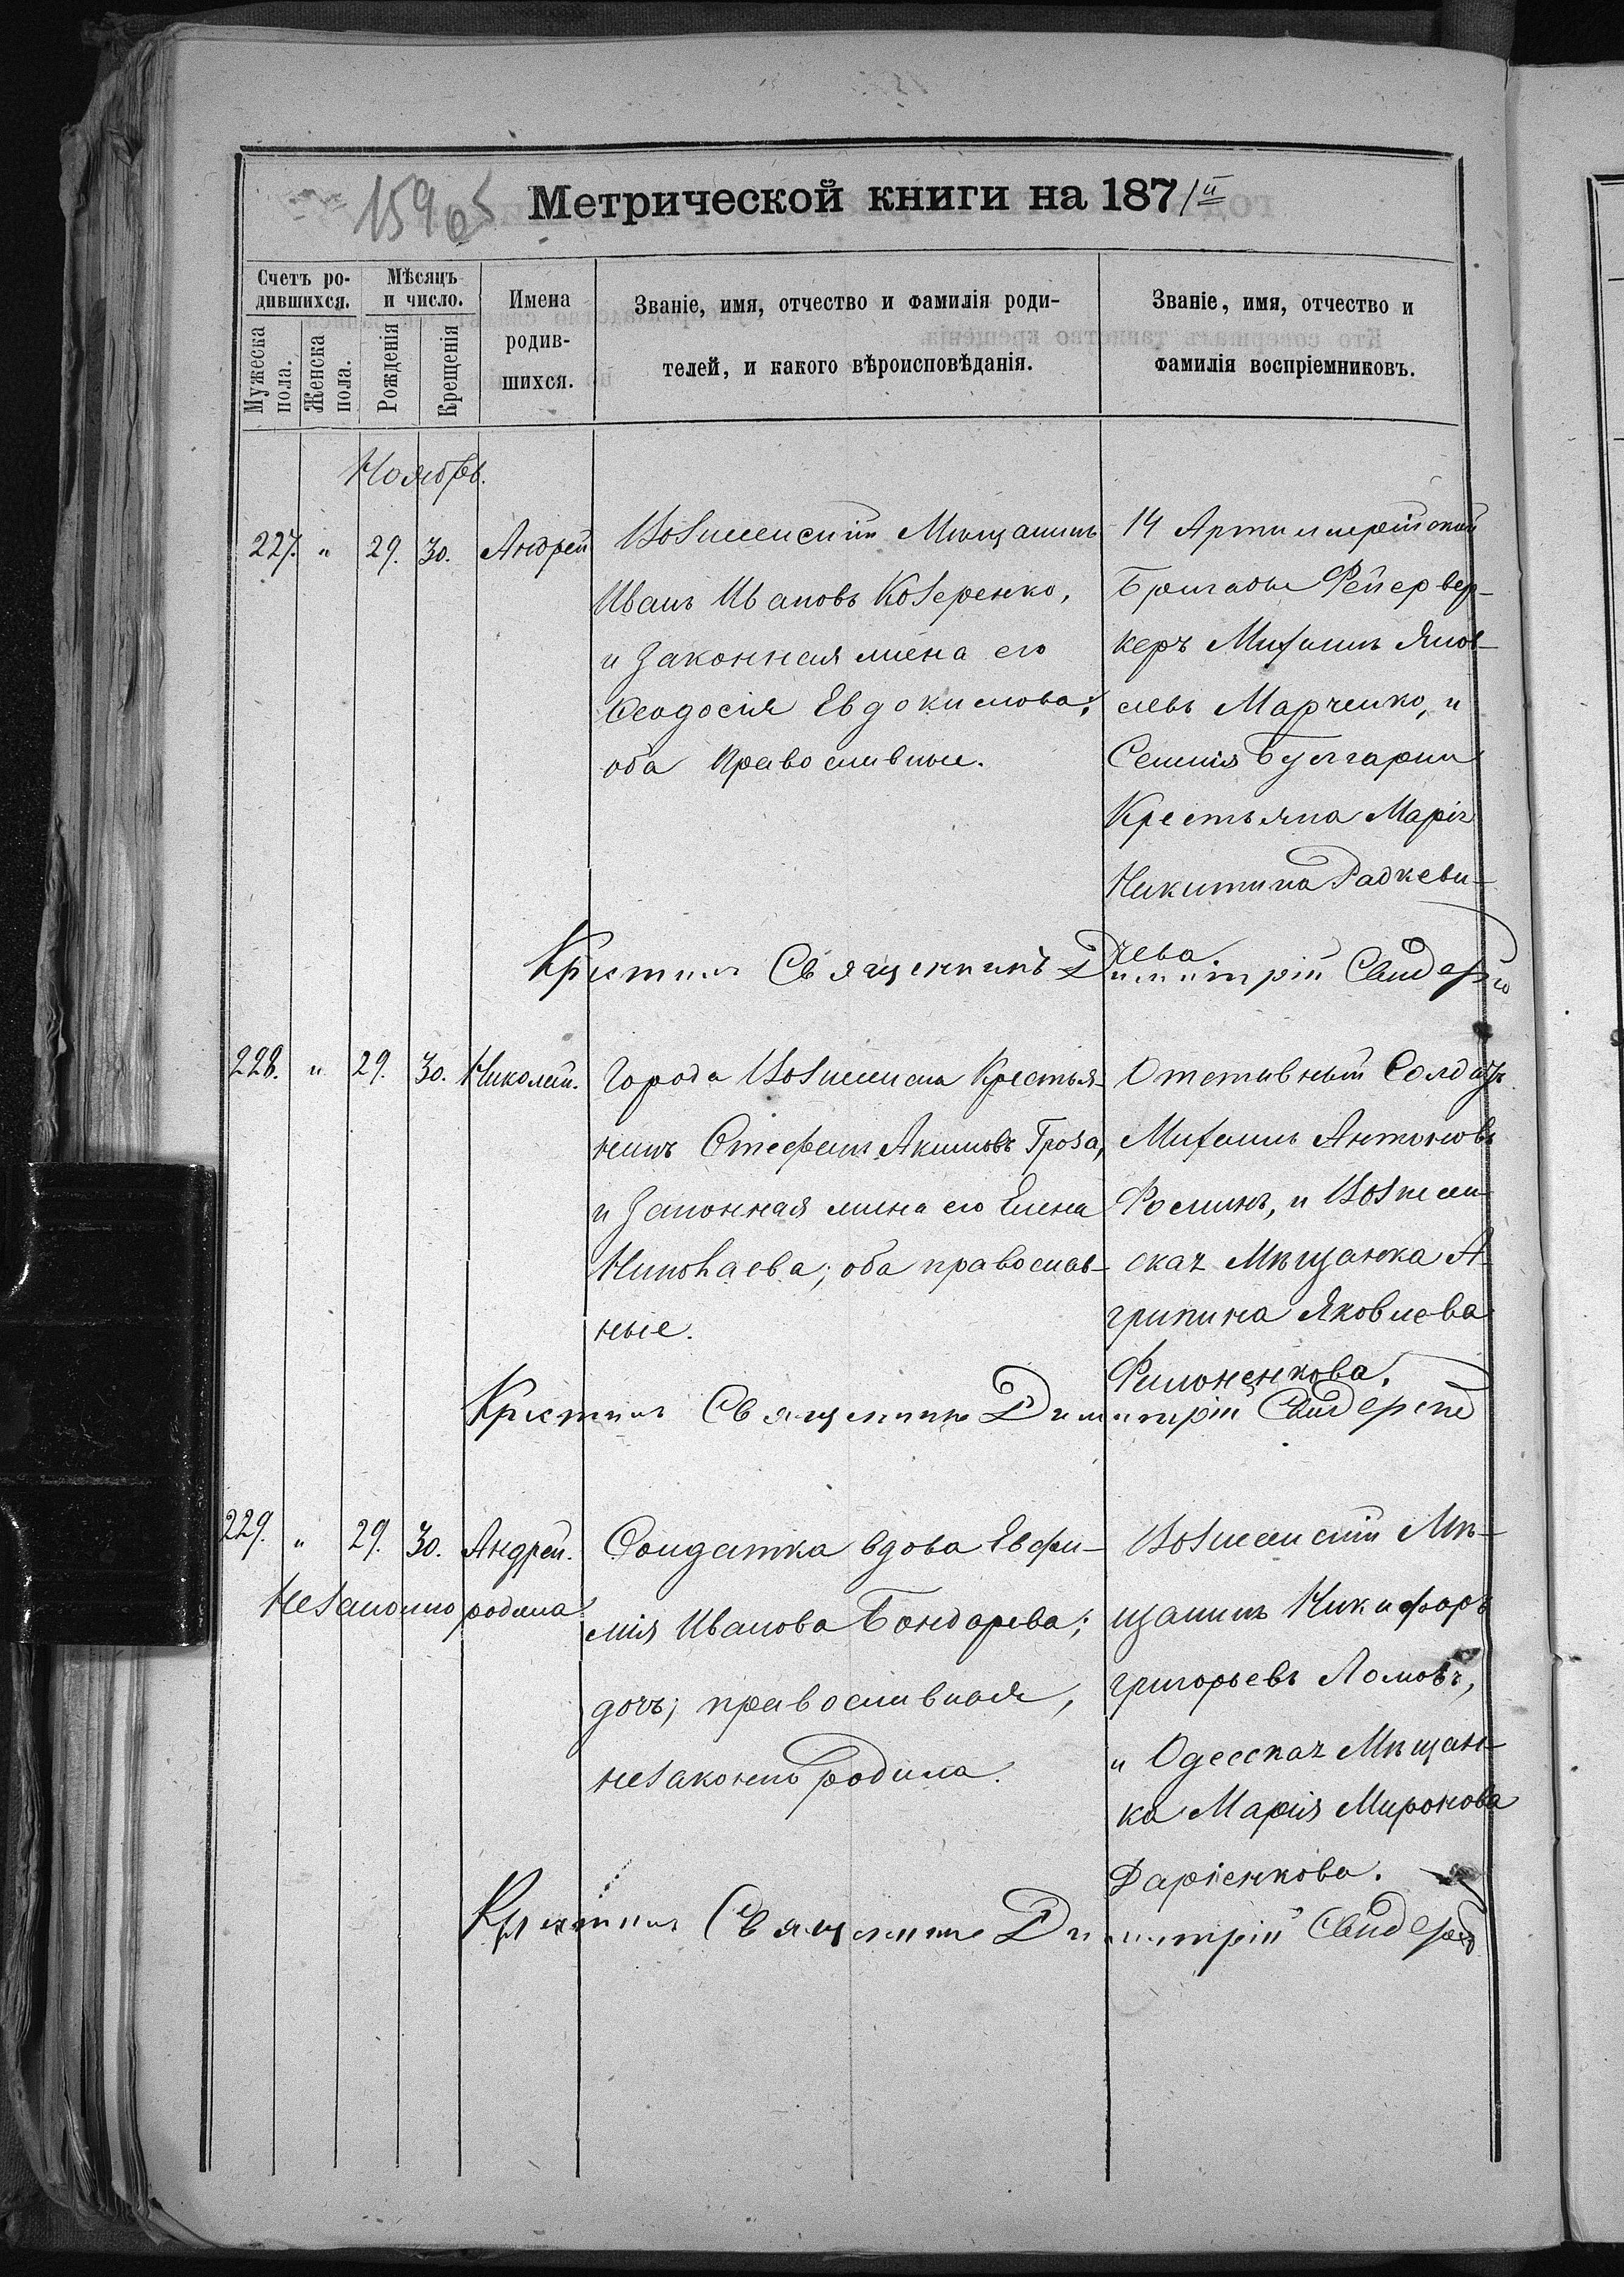 Метрической книги на 1871й
Счетъ ро-
дившихся.
Мужеска
пола.
Женска
пола.
Мѣсяцъ
и число.
Рожденія
Крещенія
Имена
родив-
шихся.
Званіе, имя, отчество и фамилія роди-
телей, и какого вѣроисповѣданія.
Званіе, имя, отчество и
фамилія воспріемниковъ.
Ноябрь.
227. " 29. 30. Андрей
Вознесенскій Мѣщанинъ
Иванъ Ивановъ Козеренко,
и законная жена его
Ѳеодосія Евдокимова;
оба православные.
14 Артиллерійской
Бригады Фейервер-
керъ Михаилъ Яков-
левъ Марченко, и
Селенія Булгарки
Крестьянка Марія
Никитина Радкеви-
чева
Крестилъ Священникъ Димитрій
228. " 29. 30. Николай.
Города Вознесенска Крестья-
нинъ Стефанъ Акимовъ Гроза,
и законная жена его Елена
Николаева; оба православ-
ные.
Отставный Солдатъ
Михаилъ Антоновъ
и Вознесен-
ская Мѣщанка А-
грипина Яковлева
Филоненкова.
Крестилъ Священникъ Димитрій
229. " 29. 30. Андрей.
Незаконно родила
Солдатка вдова Евфи-
мія Иванова Бондарева;
дочь; православная,
незаконно родила.
Вознесенскій Мѣ-
щанинъ Никифоръ
Григорьевъ Ломовъ,
и Одесская Мѣщан-
ка Марія Миронова
Даріенкова.
Крестилъ Священникъ Димитрій